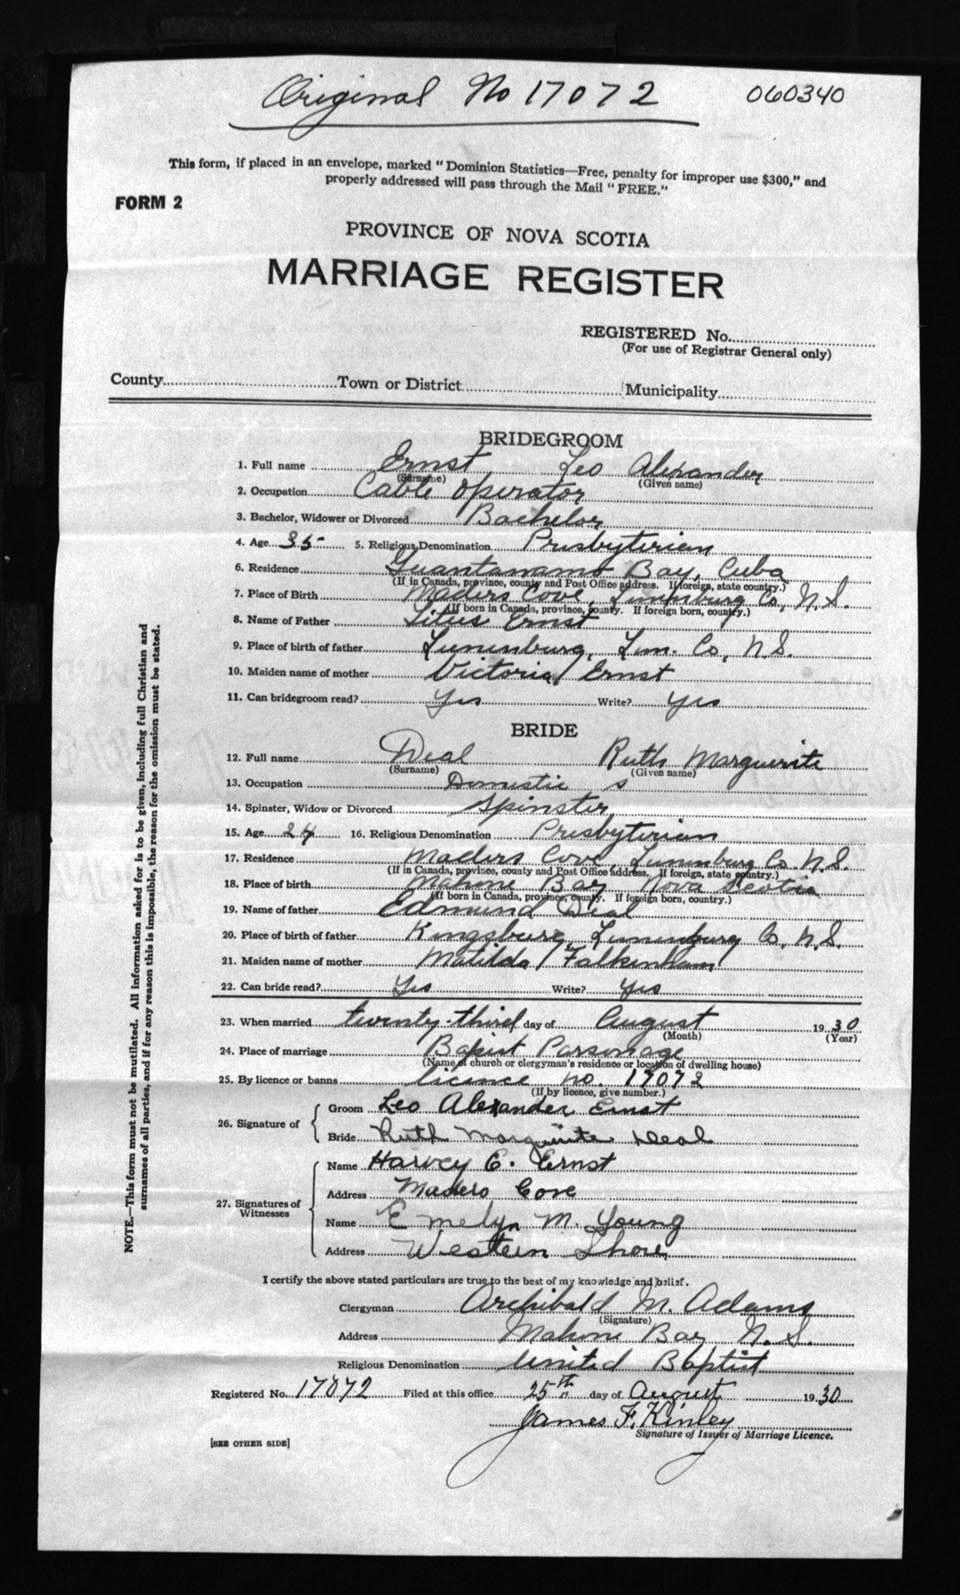 Original No 17072
060340
This form, if placed in an envelope, marked "Dominion Statistics—Free, penalty for improper use $300," and
properly addressed will pass through the Mail "FREE."
FORM 2
PROVINCE OF NOVA SCOTIA
MARRIAGE REGISTER
REGISTERED No.
(For use of Registrar General only)
County Town or District Municipality
BRIDEGROOM
1. Full name Ernst Leo Alexander
(Surname) (Given name)
2. Occupation Cable Operator
3. Bachelor, Widower or Divorced Bachelor
4. Age 35 5. Religious Denomination Presbyterian
6. Residence Guantanamo Bay, Cuba
(If in Canada, province, county and Post Office address. If foreign, state country.)
7. Place of Birth Maders Cove, Lunenburg Co, N.S.
(If born in Canada, province, county. If foreign born, country.)
8. Name of Father Titus Ernst
9. Place of birth of father Lunenburg, Lun. Co, N.S.
10. Maiden name of mother Victoria Ernst
11. Can bridegroom read? Yes Write? Yes
BRIDE
12. Full name Deal Ruth Marguerite
(Surname) (Given name)
13. Occupation Domestic s
14. Spinster, Widow or Divorced Spinster
15. Age 24 16. Religious Denomination Presbyterian
17. Residence Maders Cove, Lunenburg Co. N.S.
(If in Canada, province, county and Post Office address. If foreign, state country.)
18. Place of birth Mahone Bay Nova Scotia
(If born in Canada, province, county. If foreign born, country.)
19. Name of father Edmund Deal
20. Place of birth of father Kingsburg, Lunenburg Co, N.S.
21. Maiden name of mother Matilda Falkenham
22. Can bride read? Yes Write? Yes
23. When married twenty-third day of August 1930
(Month) (Year)
24. Place of marriage Baptist Parsonage
(Name of church or clergyman's residence or location of dwelling house)
25. By licence or banns licence no. 17072
(If by licence, give number.)
26. Signature of
Groom Leo Alexander Ernst
Bride Ruth Marguerite Deal
27. Signatures of Witnesses
Name Harvey E. Ernst
Address Maders Cove
Name Emelyn M. Young
Address Western Shore
I certify the above stated particulars are true to the best of my knowledge and belief.
Clergyman Archibald M. Adams
(Signature)
Address Mahone Bay N.S.
Religious Denomination United Baptist
Registered No. 17072 Filed at this office 25th day of August 1930
James F. Kinley
Signature of Issuer of Marriage Licence.
[SEE OTHER SIDE]
NOTE.—This form must not be mutilated. All information asked for is to be given, including full Christian and
surnames of all parties, and if for any reason this is impossible, the reason for the omission must be stated.